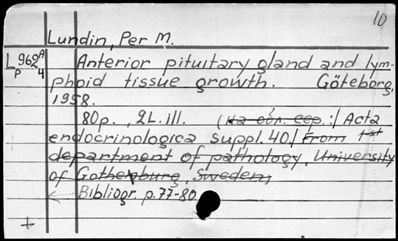 10
Lundin, Per M.
Lp 962 A/4 Anterior pituitary gland and lym-
phoid tissue growth. Göteborg,
1958.
80p., 2L. ill. (на обл. сер.:/ Acta
endocrinologica suppl. 40/ From 1st
department of pathology, University
of Gothenburg, Sweden/
Bibliogr. p. 77-80